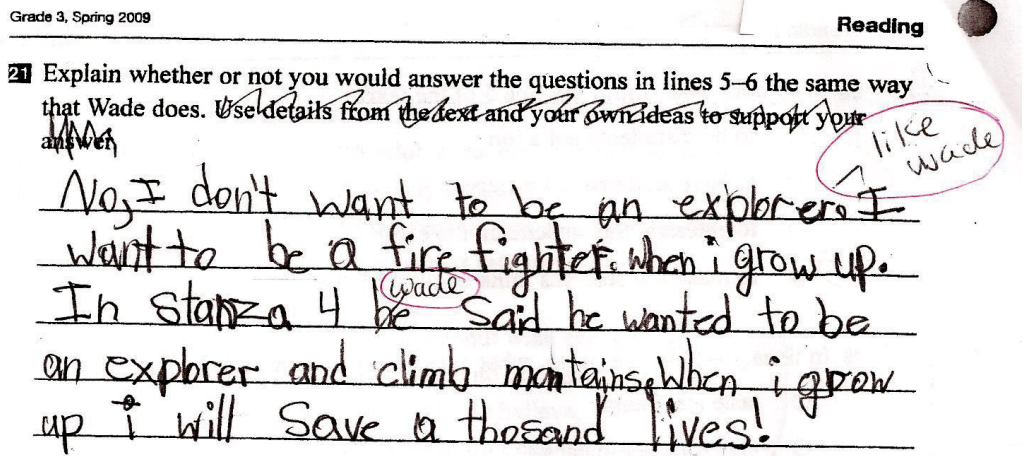 Grade 3, Spring 2009
Reading
21 Explain whether or not you would answer the questions in lines 5–6 the same way
that Wade does. Use details from the text and your own ideas to support your
answer.
like
wade
No, I don't want to be an explorer. I
want to be a fire fighter. when i grow up.
wade
In stanza 4 he said he wanted to be
an explorer and climb montains. When i grow
up i will save a thosand lives!